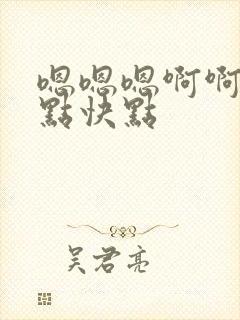 嗯嗯嗯啊啊
點快點
吴君亮